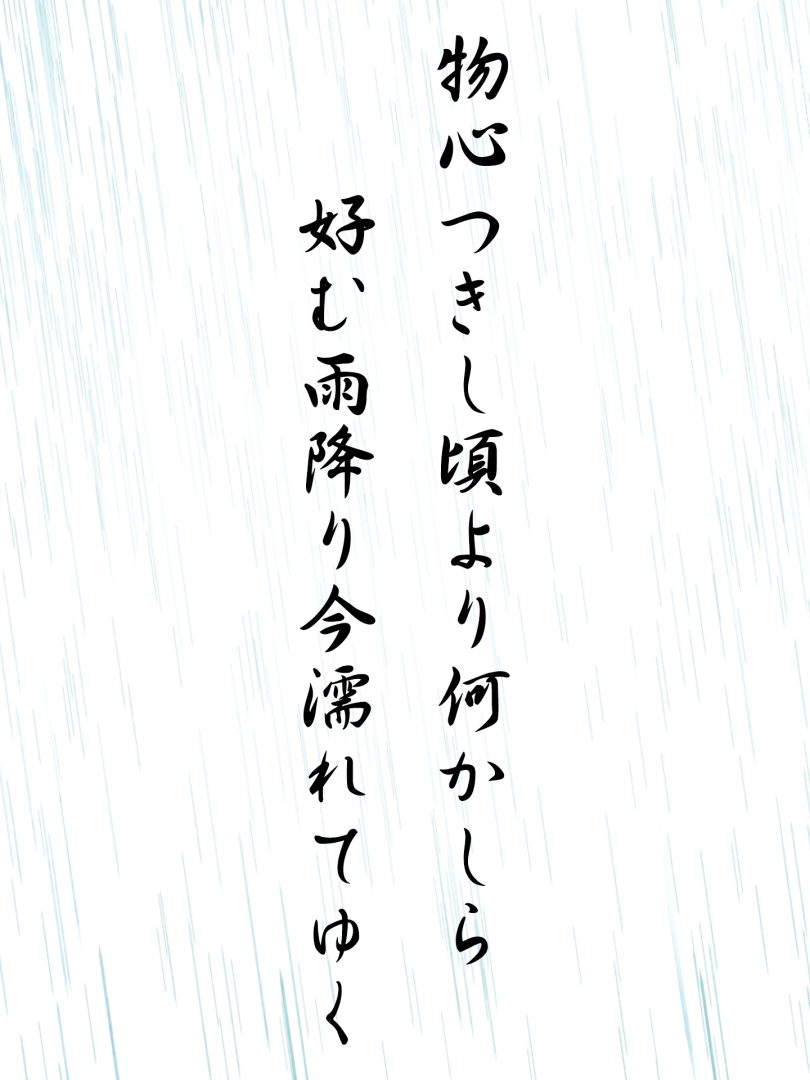 物心つきし頃より何かしら
好む雨降り今濡れてゆく